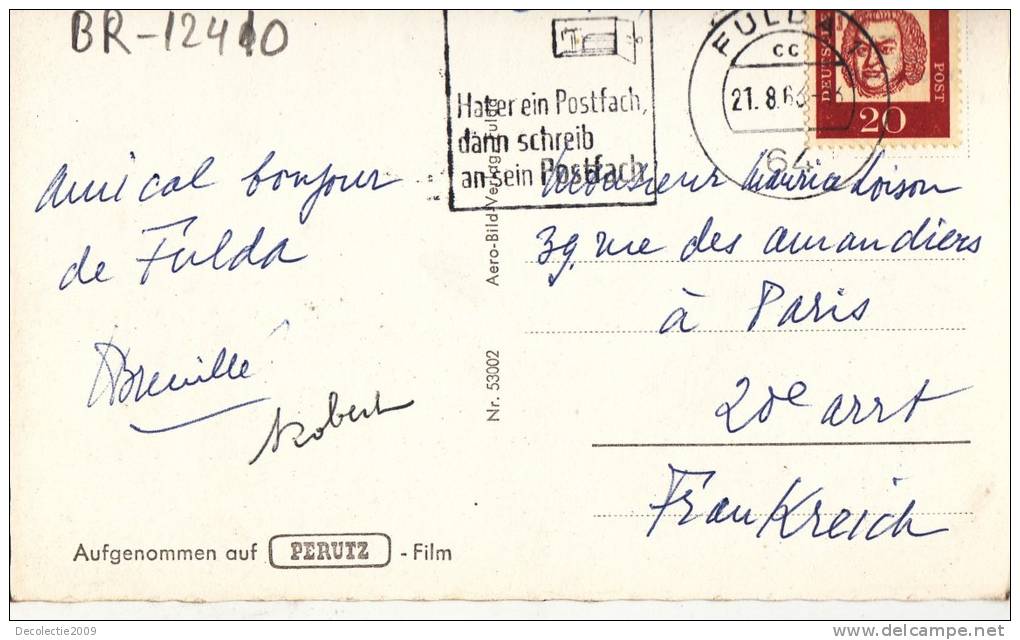 BR-12410
Hat er ein Postfach,
dann schreib
an sein Postfach
FULDA 1
cc
21.8.63
64
DEUTSCHE
POST
20
Amical bonjour
de Fulda
Breuillé
Robert
Aufgenommen auf PERUTZ - Film
Nr. 53002
Aero-Bild-Verlag, Fulda
Monsieur Maurice Loison
39, rue des amandiers
à Paris
20e arrt
Frankreich
Decolectie2009
www.delcampe.net